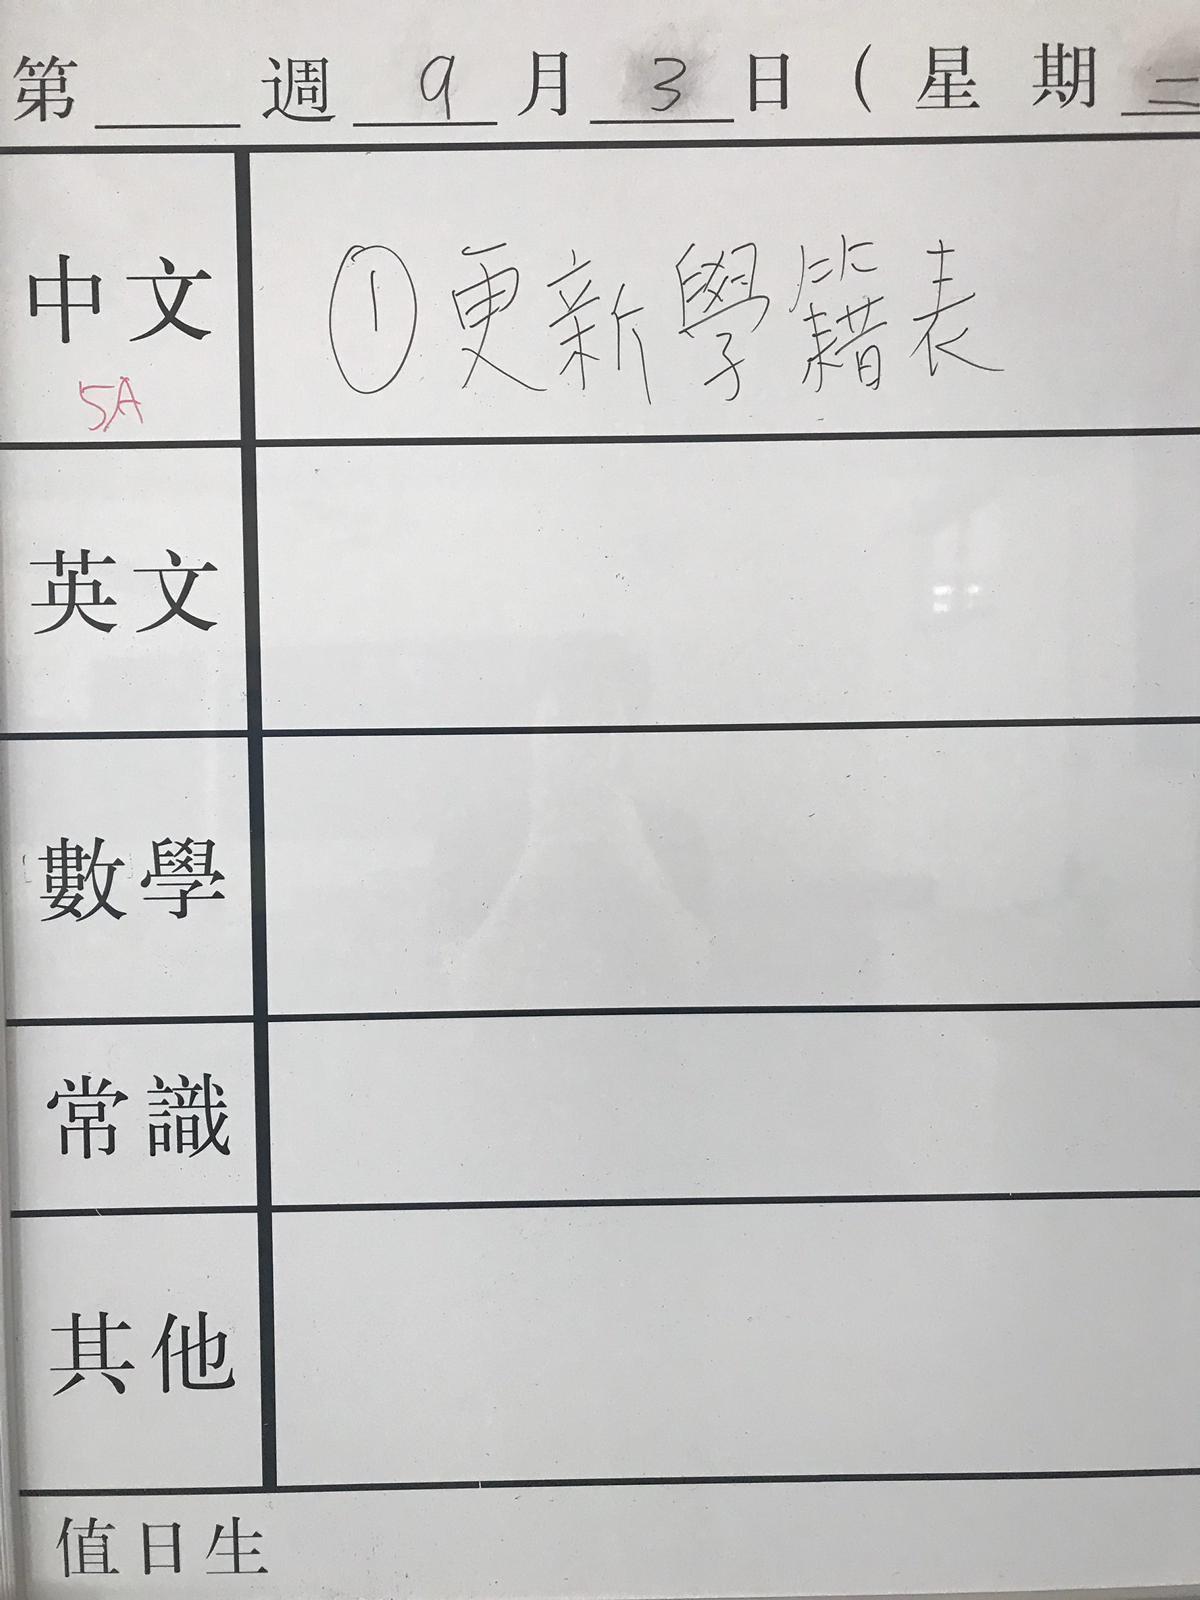 第 週 9 月 3 日 ( 星 期 二
中文 ① 更新學籍表
5A
英文
數學
常識
其他
值日生